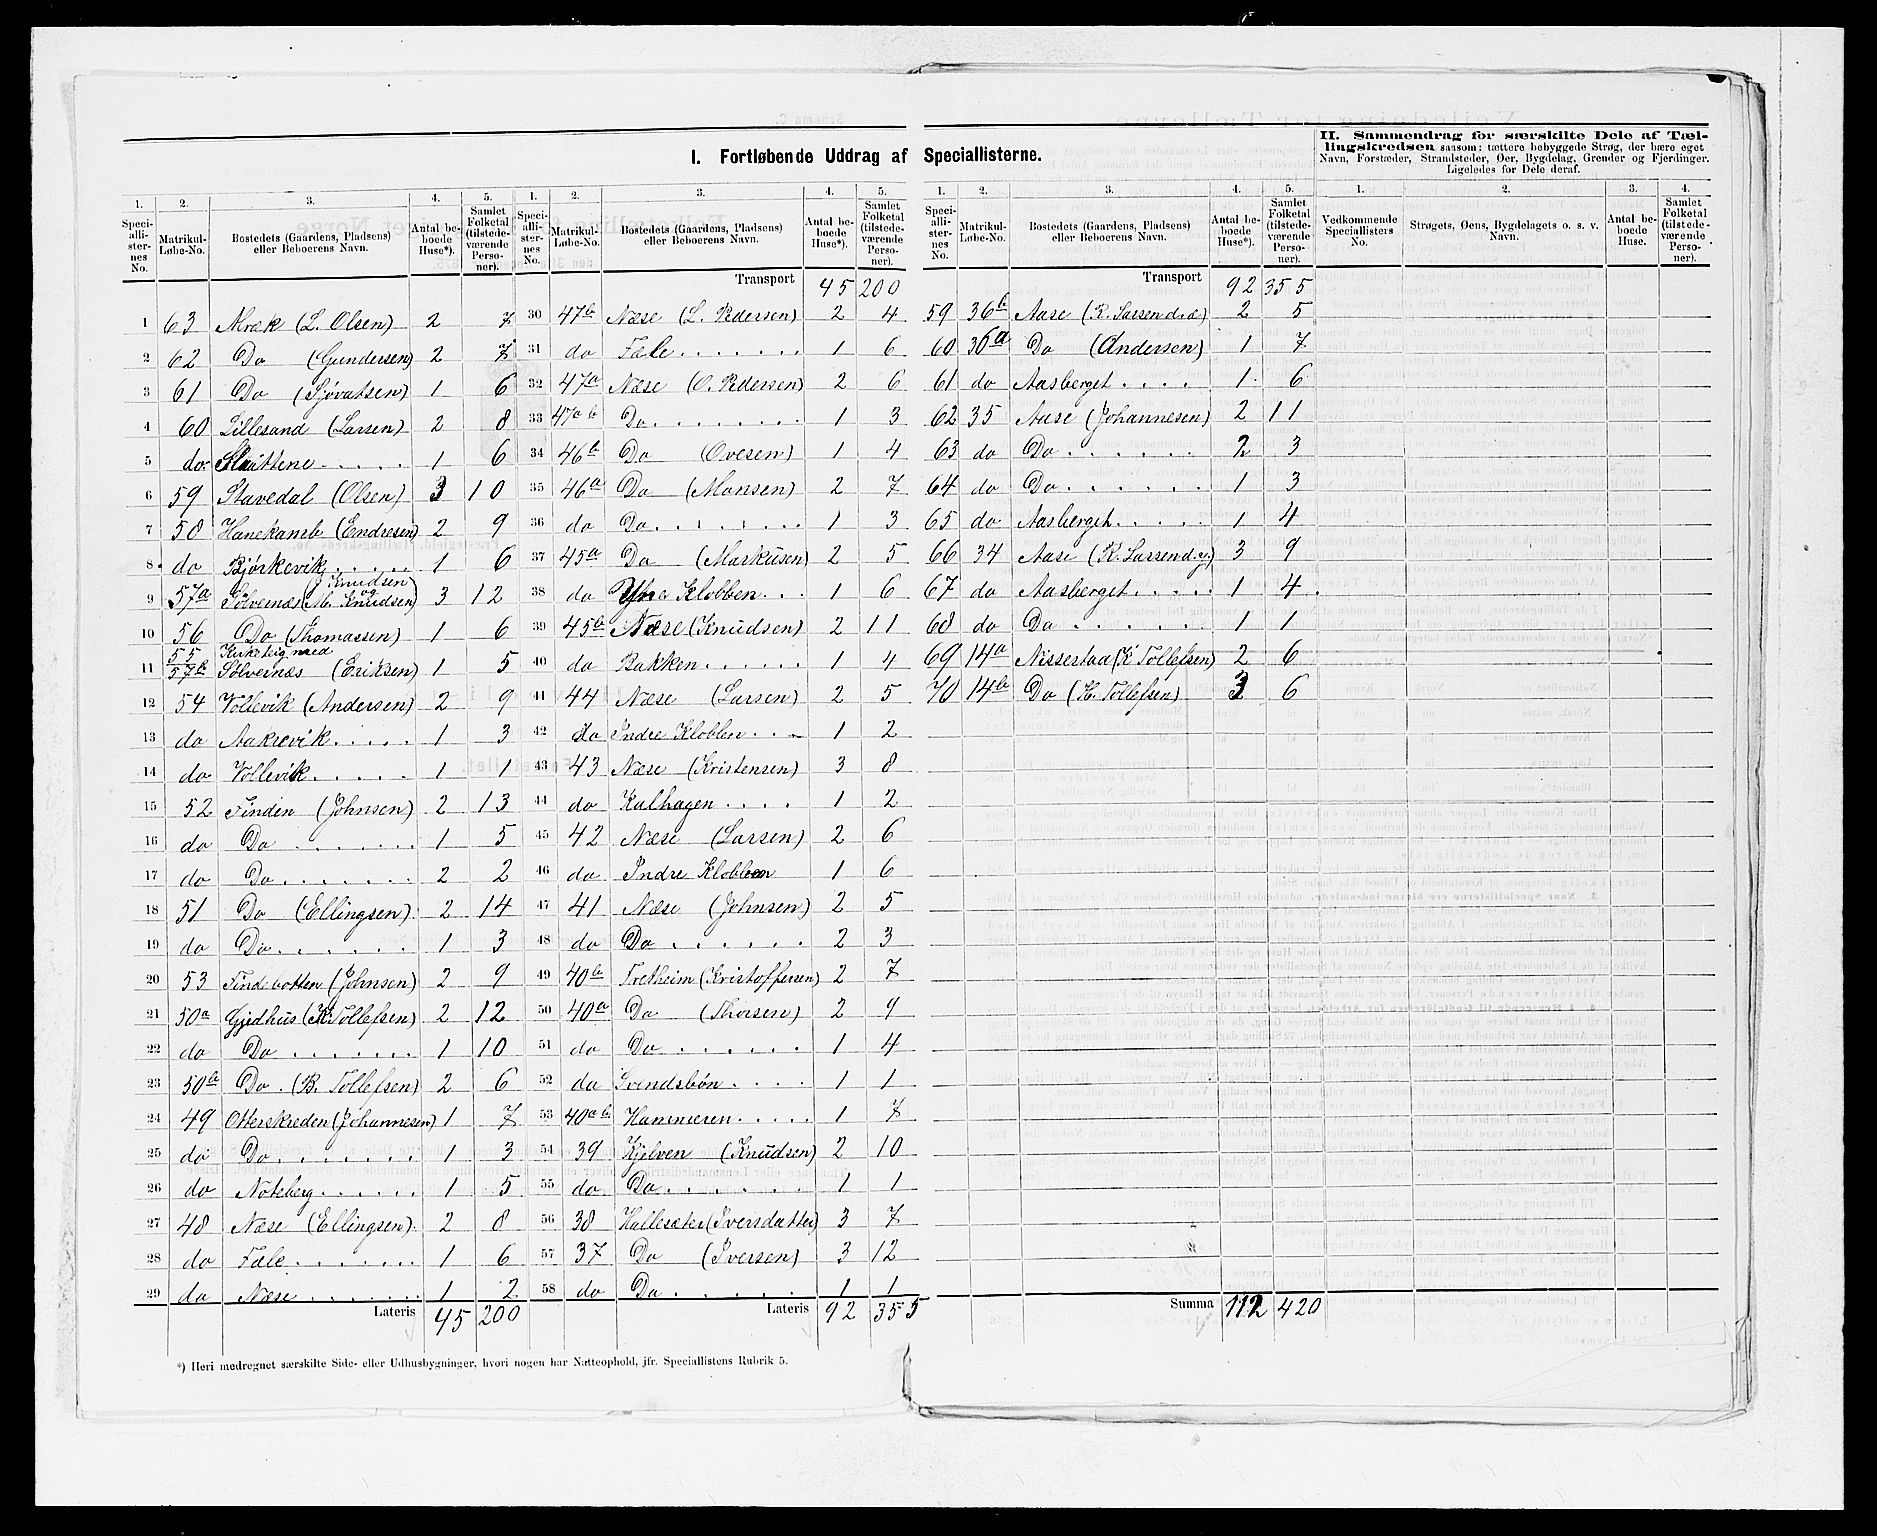 I. Fortløbende Uddrag af Speciallisterne.
II. Sammendrag for særskilte Dele af Tæl-
lingskredsen saasom: tættere bebyggede Strøg, der bære eget
Navn, Forstæder, Strandsteder, Øer, Bygdelag, Grender og Fjerdinger.
Ligeledes for Dele deraf.
1. 2. 3. 4. 5. 1. 2. 3. 4. 5. 1. 2. 3. 4. 5. 1. 2. 3. 4.
Speci-alli-ster-nes No. Matrikul-Løbe-No. Bostedets (Gaardens, Pladsens) eller Beboerens Navn. Antal be-boede Huse*). Samlet Folketal (tilstede-værende Perso-ner).
Speci-alli-ster-nes No. Matrikul-Løbe-No. Bostedets (Gaardens, Pladsens) eller Beboerens Navn. Antal be-boede Huse*). Samlet Folketal (tilstede-værende Perso-ner).
Speci-alli-ster-nes No. Matrikul-Løbe-No. Bostedets (Gaardens, Pladsens) eller Beboerens Navn. Antal be-boede Huse*). Samlet Folketal (tilstede-værende Perso-ner).
Vedkommende Speciallisters No. Strøgets, Øens, Bygdelagets o. s. v. Navn. Antal be-boede Huse. Samlet Folketal (tilstede-værende Perso-ner).
1 63 Mræk (L. Olsen) 2 7
2 62 Do (Gundersen) 2 7
3 61 Do (Sjøvatsen) 1 6
4 60 Lillesand (Larsen) 2 8
5 do Slættene 1 6
6 59 Stavedal (Olsen) 3 10
7 58 Hanekamb (Endresen) 2 9
8 do Bjørkevik 1 6
9 57a Sølvernæs (M. Knudsen og Knudsen) 3 12
10 56 Do (Thomassen) 1 6
11 55 57b Kirketeig med Sølvernæs (Eriksen) 1 5
12 54 Vollevik (Andersen) 2 9
13 do Aakrevik 1 3
14 do Vollevik 1 1
15 52 Finden (Johnsen) 2 13
16 do Do 1 5
17 do Do 2 2
18 51 Do (Ellingsen) 2 14
19 do Do 1 3
20 53 Findebotten (Johnsen) 2 9
21 50a Gjedhus (K. Tollefsen) 2 12
22 do Do 1 10
23 50b Do (B. Tollefsen) 2 6
24 49 Otterskreden (Johannesen) 1 7
25 do Do 1 3
26 do Noteberg 1 5
27 48 Næse (Ellingsen) 2 8
28 do Fæle 1 6
29 do Næse 1 2
Lateris 45 200
Transport 45 200
30 47b Næse (L. Pedersen) 2 4
31 do Fæle 1 6
32 47a Næse (O. Pedersen) 2 6
33 47ab Do 1 3
34 46b Do (Ovesen) 1 4
35 46a Do (Monsen) 2 7
36 do Do 1 3
37 45a Do (Markusen) 2 5
38 do Ytre Klobben 1 6
39 45b Næse (Knudsen) 2 11
40 do Bakken 1 4
41 44 Næse (Larsen) 2 5
42 do Indre Klobben 1 2
43 43 Næse (Kristensen) 3 8
44 do Kalhagen 1 2
45 42 Næse (Larsen) 2 6
46 do Indre Klobben 1 6
47 41 Næse (Johnsen) 2 5
48 do Do 2 3
49 40b Tretheim (Kristoffersen) 2 7
50 40a Do (Thorsen) 2 9
51 do Do 1 4
52 do Svendsbøn 1 1
53 40ab Hammeren 1 7
54 39 Kjelven (Knudsen) 2 10
55 do Do 1 1
56 38 Hallesæter (Iversdatter) 3 7
57 37 Do (Iversen) 3 12
58 do Do 1 1
Lateris 92 355
Transport 92 355
59 36b Aase (K. Larsen d.æ) 2 5
60 36a Do (Andersen) 1 7
61 do Aasberget 1 6
62 35 Aase (Johannesen) 2 11
63 do Do 2 3
64 do Do 1 3
65 do Aasberget 1 4
66 34 Aase (K. Larsen d.y.) 3 9
67 do Aasberget 1 4
68 do Do 1 1
69 14a Nissestad (K Tollefsen) 2 6
70 14b Do (H. Tollefsen) 3 6
Summa 112 420
*) Heri medregnet særskilte Side- eller Udhusbygninger, hvori nogen har Natteophold, jfr. Speciallistens Rubrik 5.